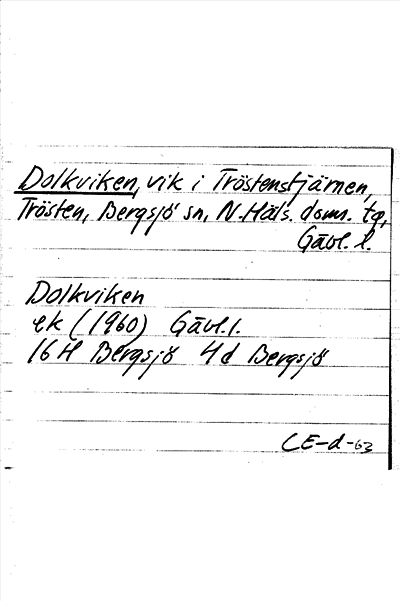 Dolkviken, vik i Tröstenstjärnen,
Trösten, Bergsjö sn, N. Häls. doms. tg,
Gävl. l.
Dolkviken
ek (1960) Gävl. l.
16 H Bergsjö 4 d Bergsjö
CE-d-63